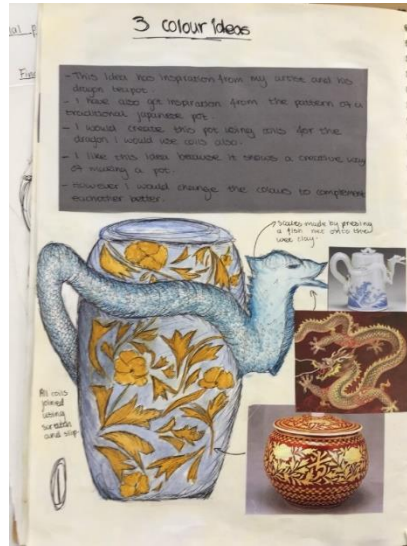 3 colour ideas
- This idea has inspiration from my artist and his
dragon teapot.
- I have also got inspiration from the pattern of a
traditional japanese pot.
- I would create this pot using coils for the
dragon i would use coils also.
- I like this idea because it shows a creative way
of making a pot.
- however I would change the colours to complement
eachother better.
scales made by pressing
a fish net onto the
wet clay.
All coils
joined
using
scratch
and slip